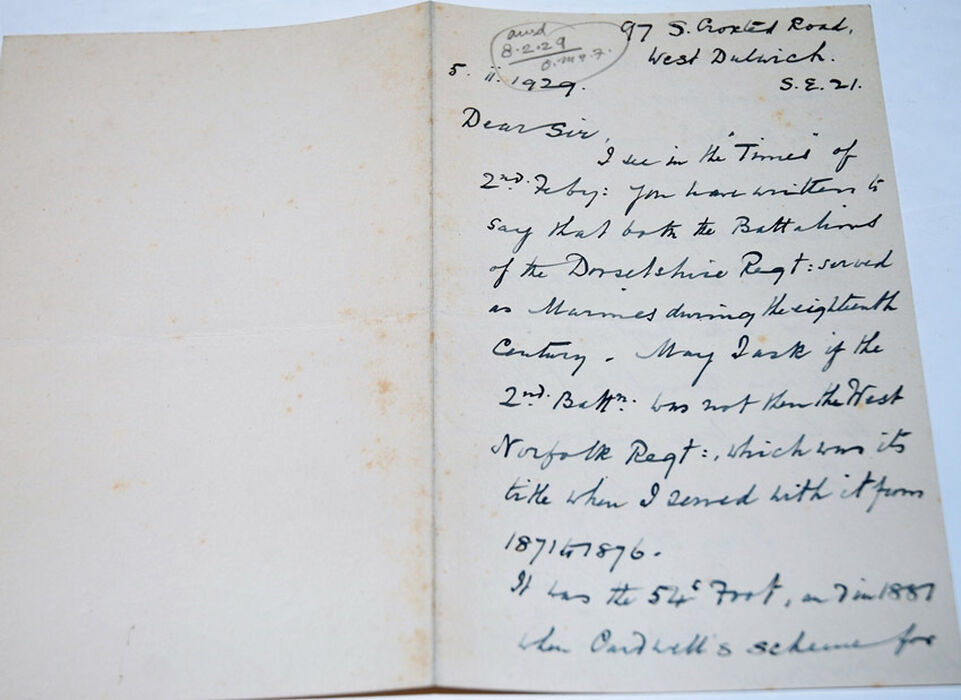 answd
8.2.29
97 S. Croxted Road,
West Dulwich.
S.E. 21.
5. ii. 1929.
Dear Sir,
I see in the "Times" of
2nd. Feby: you have written to
say that both the Battalions
of the Dorsetshire Regt: served
as Marines during the eighteenth
Century. May I ask if the
2nd. Battn: was not then the West
Norfolk Regt:, which was its
title when I served with it from
1871 to 1876.
It was the 54th Foot, and in 1881
when Cardwell's scheme for